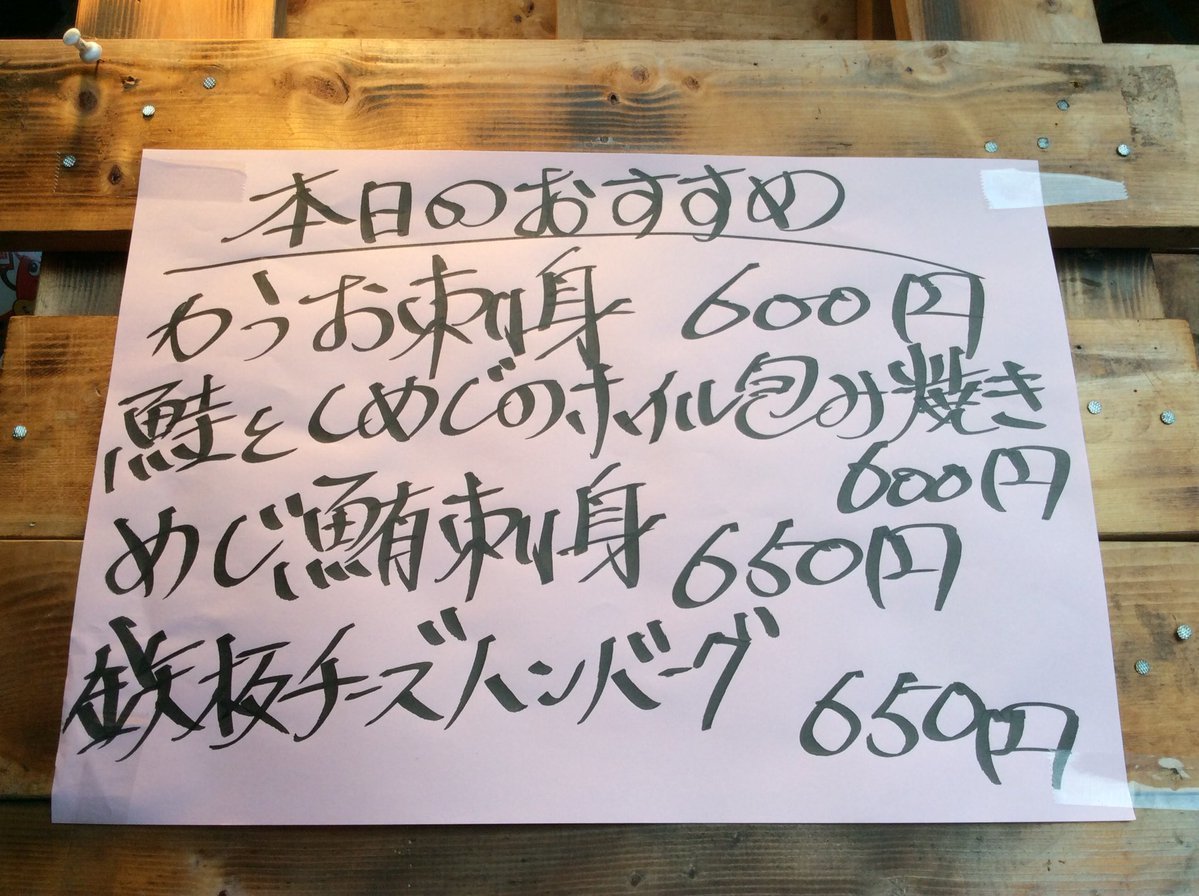 本日のおすすめ
かつお刺身 600円
鮭としめじのホイル包み焼き
600円
めじ鮪刺身 650円
鉄板チーズハンバーグ
650円